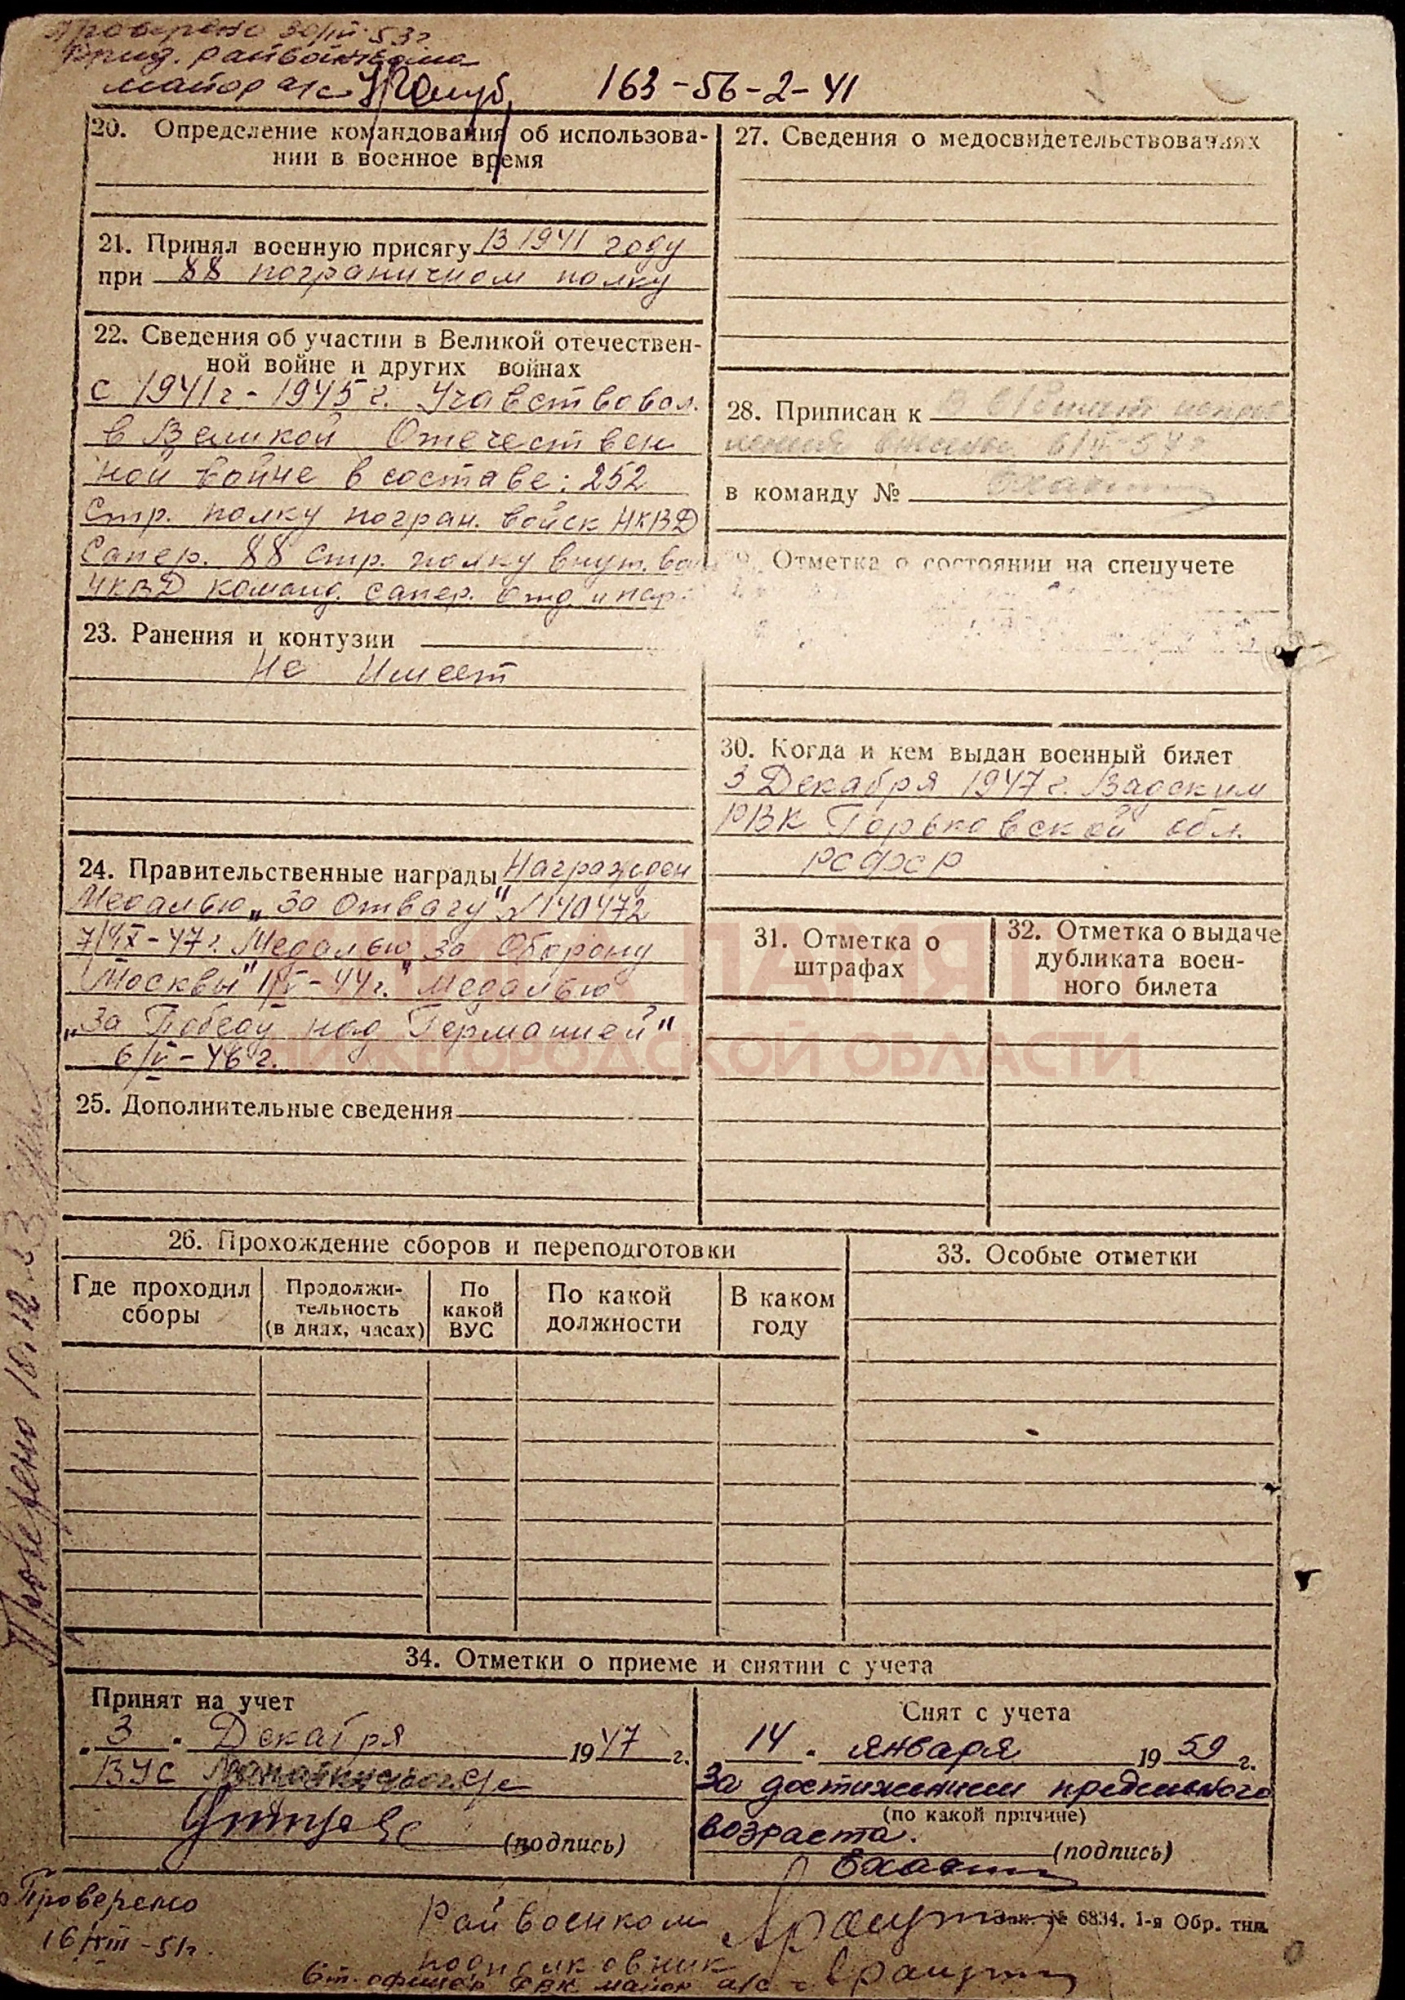 Проверено 30/III-53г
майор а/с
163-56-2-41
20. Определение командования об использова-
нии в военное время
21. Принял военную присягу В 1941 году
при 88 пограничном полку
22. Сведения об участии в Великой отечествен-
ной войне и других войнах
с 1941г-1945г. Учавствовал
в Великой Отечествен
ной войне в составе: 252
стр. полку погран. войск НКВД
Сапер. 88 стр. полку внут. во
НКВД команд. сапер. отд.
23. Ранения и контузии
Не имеет
24. Правительственные награды Награжден
Медалью „За Отвагу" №140472
Медалью „За Оборону
Москвы" Медалью
„За Победу над Германией"
6/V-46г.
25. Дополнительные сведения
26. Прохождение сборов и переподготовки
Где проходил сборы
Продолжи-
тельность
(в днях, часах)
По
какой
ВУС
По какой
должности
В каком
году
27. Сведения о медосвидетельствованиях
28. Приписан к
в команду №
29. Отметка о состоянии на спецучете
30. Когда и кем выдан военный билет
3 Декабря 1947г. Вадским
РВК Горьковской обл.
РСФСР
31. Отметка о
штрафах
32. Отметка о выдаче
дубликата воен-
ного билета
33. Особые отметки
34. Отметки о приеме и снятии с учета
Принят на учет
„3" Декабря 1947 г.
ВУС
(подпись)
Снят с учета
14 " января 1959 г.
За достижением предельного
(по какой причине)
возраста.
(подпись)
Проверено
16/VIII-51г.
Райвоенком
подполковник
Ст. офицер РВК майор а/с
Зак. № 6834. 1-я Обр. тип.
Проверено 10.12.53
КНИГА ПАМЯТИ
НИЖЕГОРОДСКОЙ ОБЛАСТИ